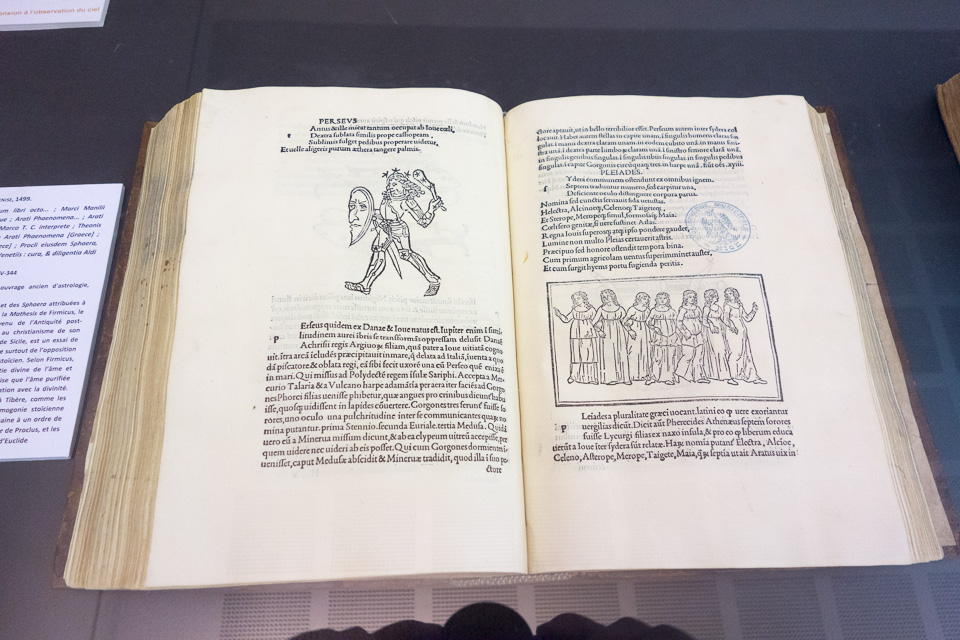 ension à l'observation du ciel
ENISE, 1499.
um libri octo... ; Marci Manilii
ue ; Arati Phaenomena... ; Arati
Marco T. C. interprete ; Theonis
Arati Phaenomena [Graece] ;
ece] ; Procli eiusdem Sphæra,
Venetiis : cura, & diligentia Aldi
V-344
ouvrage ancien d'astrologie,
et des Sphaera attribuées à
la Mathesis de Firmicus, le
venu de l'Antiquité post-
au christianisme de son
de Sicile, est un essai de
e surtout de l'opposition
stoïcien. Selon Firmicus,
tie divine de l'âme et
ise que l'âme purifiée
ation avec la divinité.
à Tibère, comme les
mogonie stoïcienne
aine à un ordre de
e de Proclus, et les
d'Euclide
PERSEVS
Dextra sublata similis prope cassiopeam,
Sublimis fulget pedibus properare videtur,
Et uelle aligeris purum æthera tangere palmis.
P
Erseus quidem ex Danae & Ioue natus est. Iupiter enim i simi
litudinem aurei ibris se transformãs oppressam delusit. Danaë
Achrisii regis Argiuoꝝ filiam, quã pater a Ioue uitiatã cogno
uit. itra arcã
da piscatore & oblata regi, eã sibi fecit uxorẽ una cũ Perseo quẽ enixa ẽ
in mari. Qui missus ad Polydectẽ regem insulæ Sariphi. Accepta a Mer
curio Talaria & a Vulcano harpe adamãtia per aera iter faciẽs ad Gorgo
nes Phorci filias uenisse phibetur, quæ angues pro crinibus dicunt habu
isse, quosq; uidissent in lapides cõuertere. Gorgones tres ferunt fuisse so
rores, uno oculo una pulchritudine inter se communicantes
mina putantur. prima Stennio. secunda Euriale. tertia Medusa.
uero eũ a Minerua missum dicunt, & ab ea clypeum uitreũ accepisse, per
quem uidere nec uideri ab eis posset. Qui cum Gorgones dormientes in
uenisset, caput Medusæ abscidit & Mineruæ tradidit, quod illa i suo pe
ctore
ctore aptauit, ut in bello terribilior esset. Perseum autem inter sydera col
locauit. Habet autem stellas in capite unam, i singulis homeris claras sin
gulas. i manu dextra claram unam. in eodem cubito unã. in manu sini
stra unã. i dextra parte lumbo ꝝ claram unã. i sinistro femore clarã unã.
in singulis genibus singulas. i singulis tibiis singulas. in singulis pedibus
singulas. i capite Gorgonis
PLEIADES.
Septem traduntur numero, sed carpitur una,
Deficiente oculo distinguere corpora parua.
Nomina sed cunctis seruauit fida uetustas.
Helectra, Alcinoeq;, Celenoq; Taigeteq;,
Et Sterope, Meropeq; simul, formosaq; Maia.
Cœlifero genitæ, si uere sustinet Atlas.
Regna Iouis superosq; atq; ipso pondere gaudet,
Lumine non multo Pleias certauerit astris.
Præcipuo sed honore ostendit tempora bina.
Cum primum agricolam uentus superimminet auster,
Et cum surgit hyems portu fugienda peritis.
P
Leiades a pluralitate græci uocant. latini eo ꝙ uere exoriantur
uergilias dicũt. Dicit aũt Pherecides Athenæus septem sorores
fuisse Lycurgi filias ex naxo insula, & pro eo ꝙ liberum educa
uerũt a Ioue iter sydera sũt relatæ. Haꝝ nomina putant Electra, Alcioe,
Celeno, Asterope, Merope, Taigete, Maia, septia utait Aratus uix in